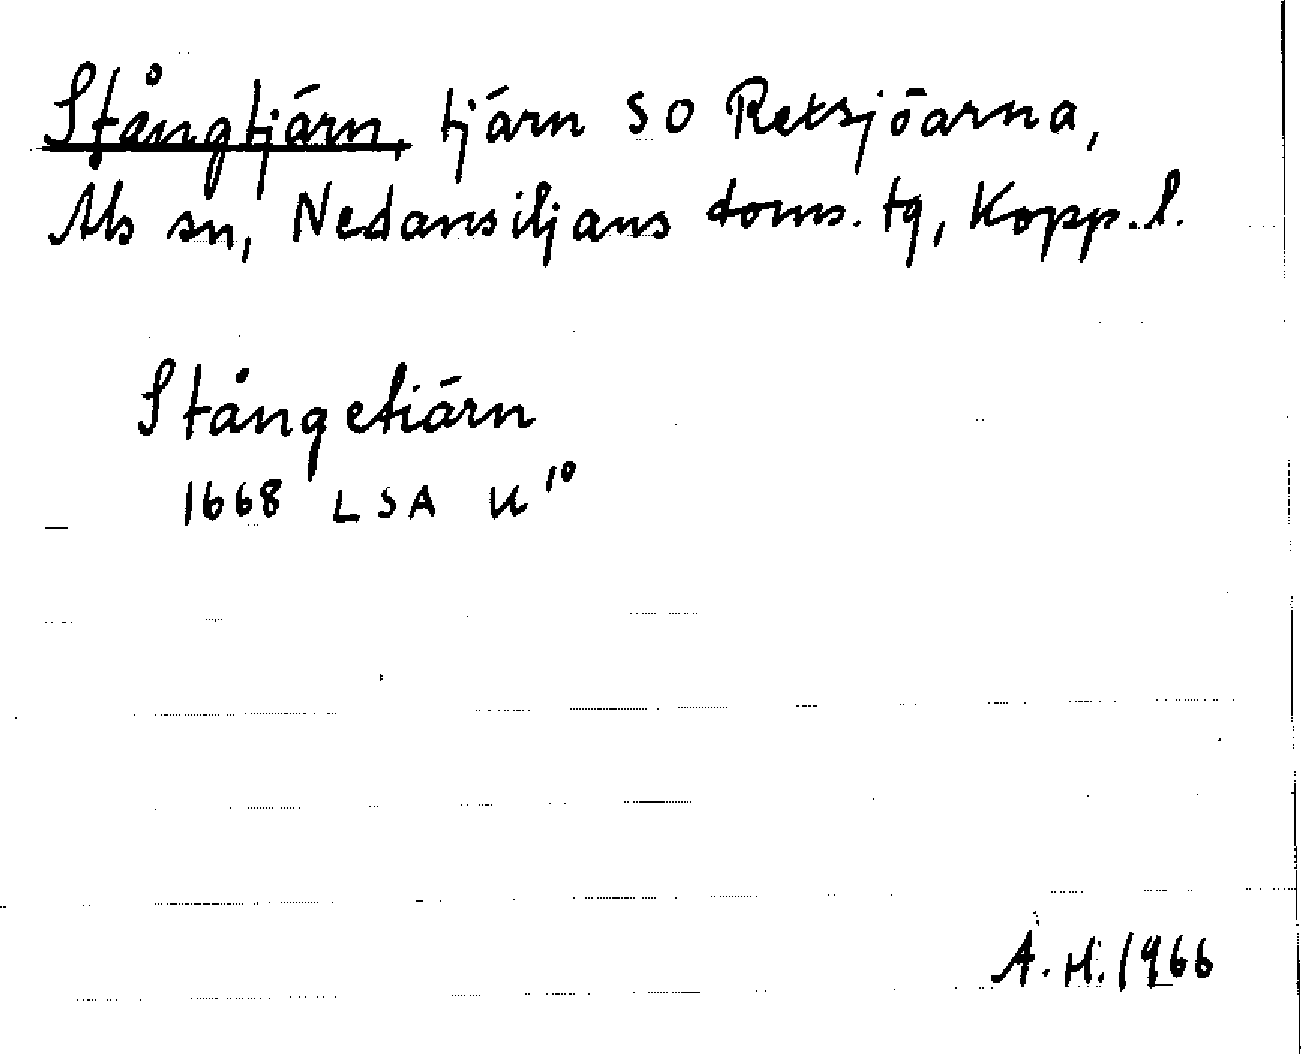 Stångtjärn, tjärn SO Retsjöarna,
Ås sn, Nedansiljans doms. tg, Kopp. l.
Stångetiärn
1668 LSA U¹⁰
A. H. 1966